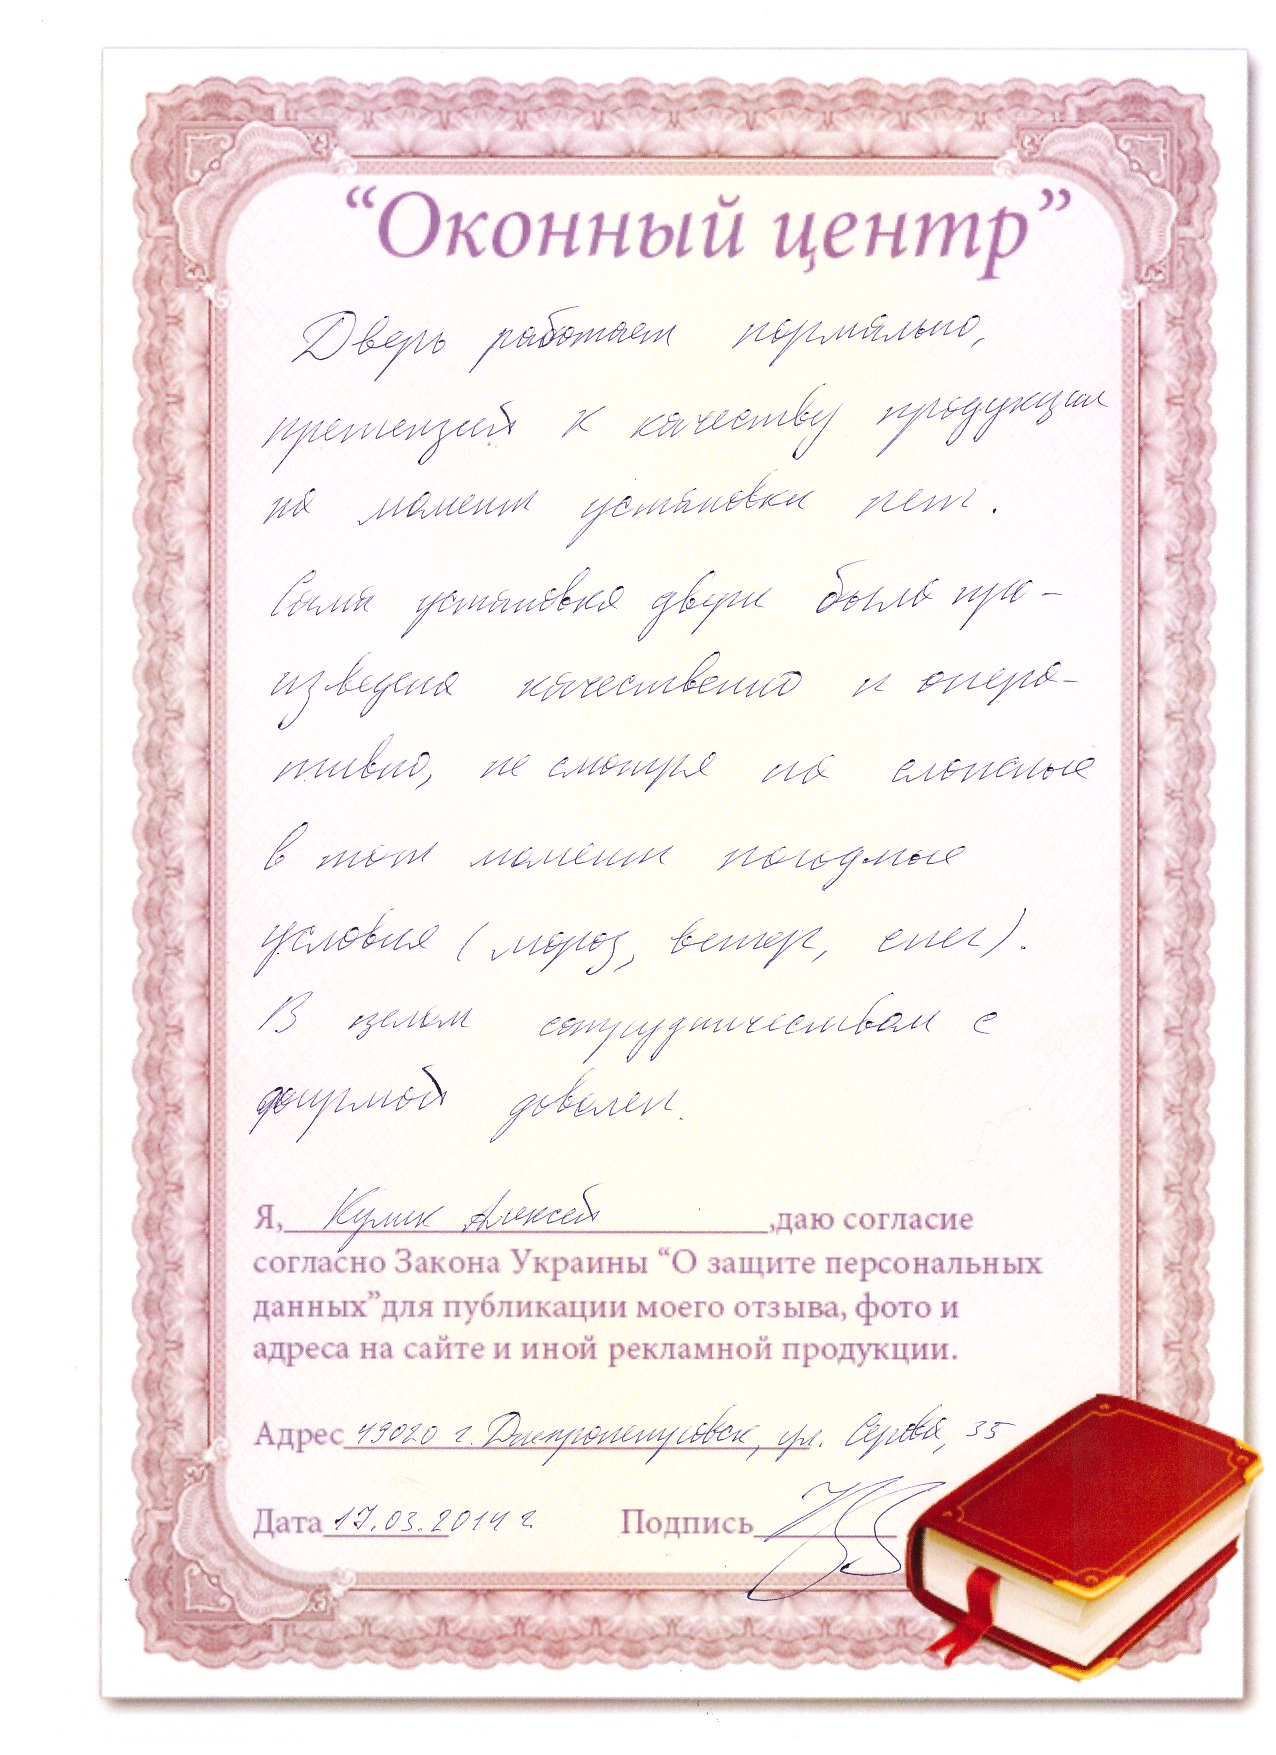 “Оконный центр”
Дверь работает нормально,
претензий к качеству продукции
на момент установки нет.
Сама установка двери была про-
изведена качественно и опера-
тивно, не смотря на сложные
в тот момент погодные
условия (мороз, ветер, снег).
В целом сотрудничеством с
фирмой доволен.
Я, Кулик Алексей ,даю согласие
согласно Закона Украины “О защите персональных
данных”для публикации моего отзыва, фото и
адреса на сайте и иной рекламной продукции.
Адрес 49020 г. Днепропетровск, ул. Серова, 35
Дата 17.03.2014 г. Подпись